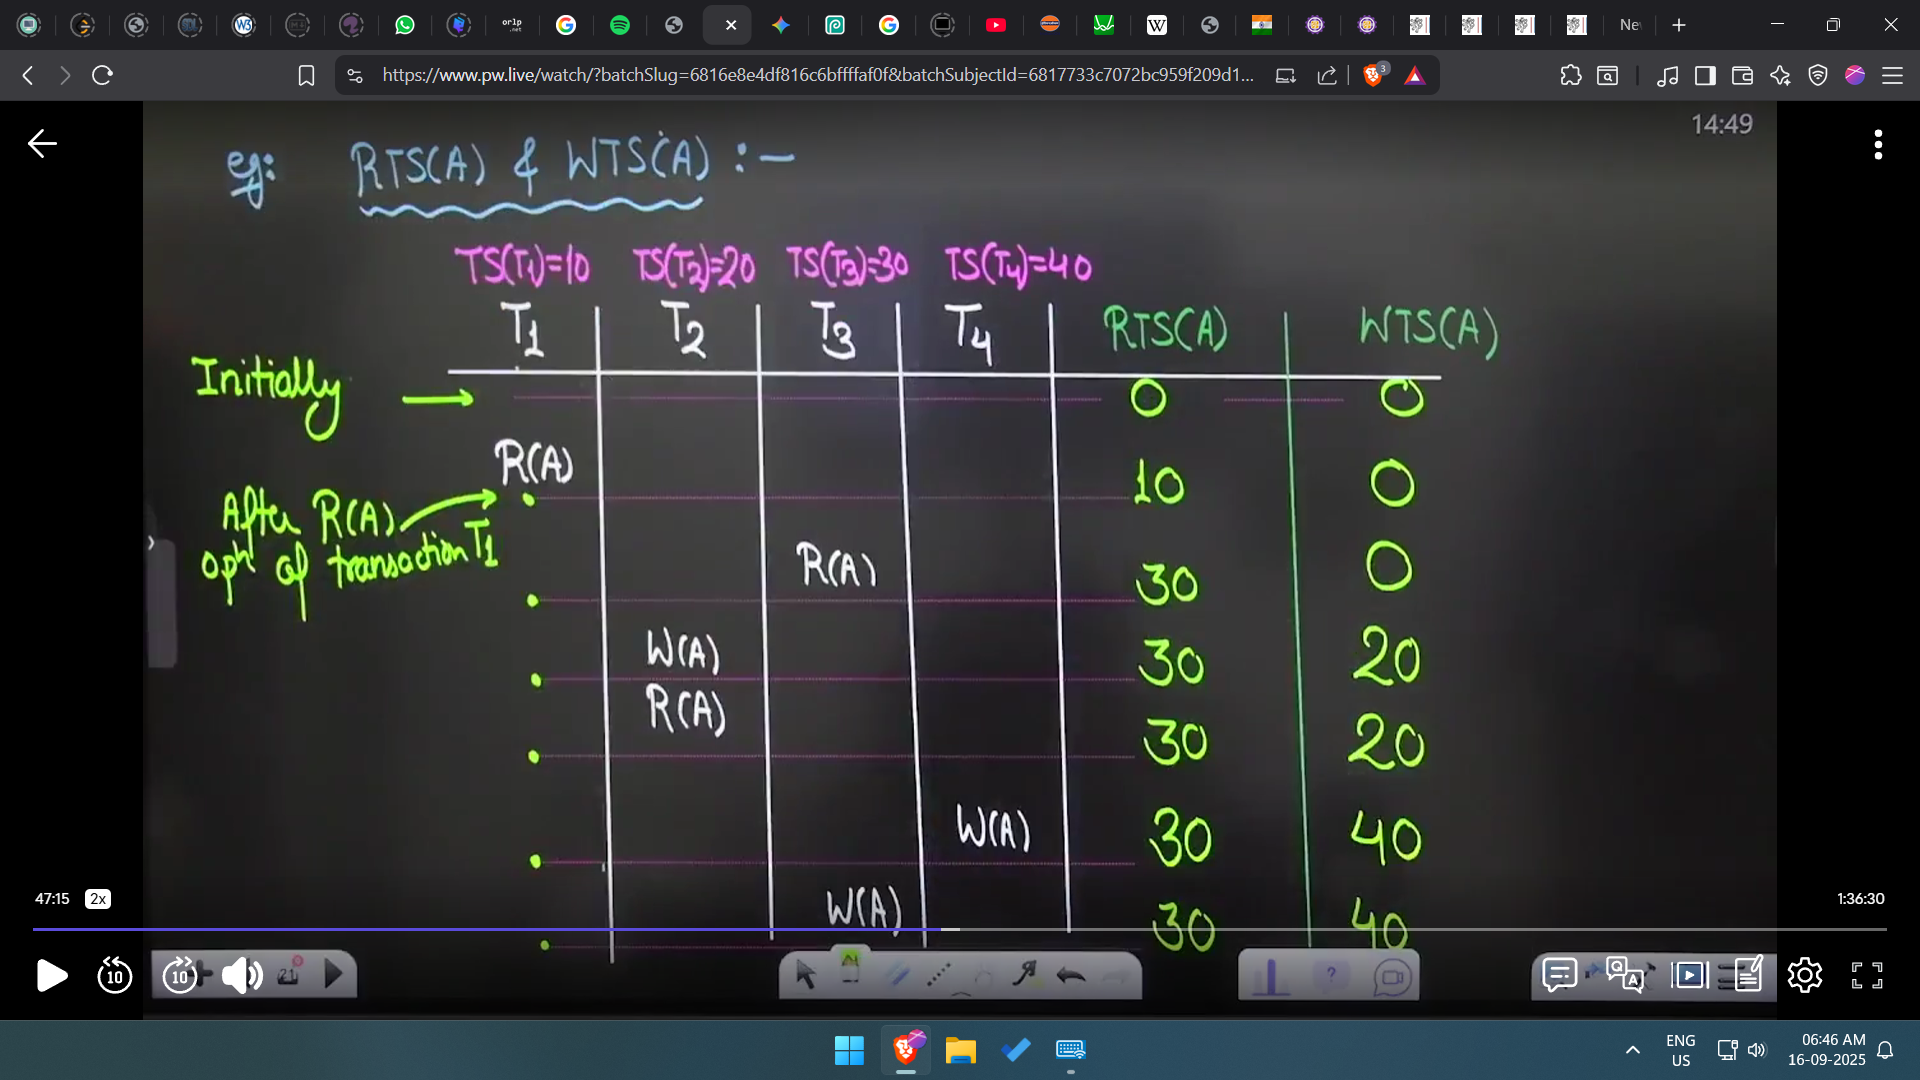 orlp
.net
Ne
https://www.pw.live/watch/?batchSlug=6816e8e4df816c6bffffaf0f&batchSubjectId=6817733c7072bc959f209d1...
3
14:49
eg: RTS(A) & WTS(A) :-
TS(T1)=10 TS(T2)=20 TS(T3)=30 TS(T4)=40
T1 T2 T3 T4 RTS(A) WTS(A)
Initially → 0 0
R(A) 10 0
After R(A)
opn of transaction T1
R(A) 30 0
W(A) 30 20
R(A) 30 20
W(A) 30 40
W(A) 30 40
47:15 2x 1:36:30
10 10 21
ENG
US
06:46 AM
16-09-2025